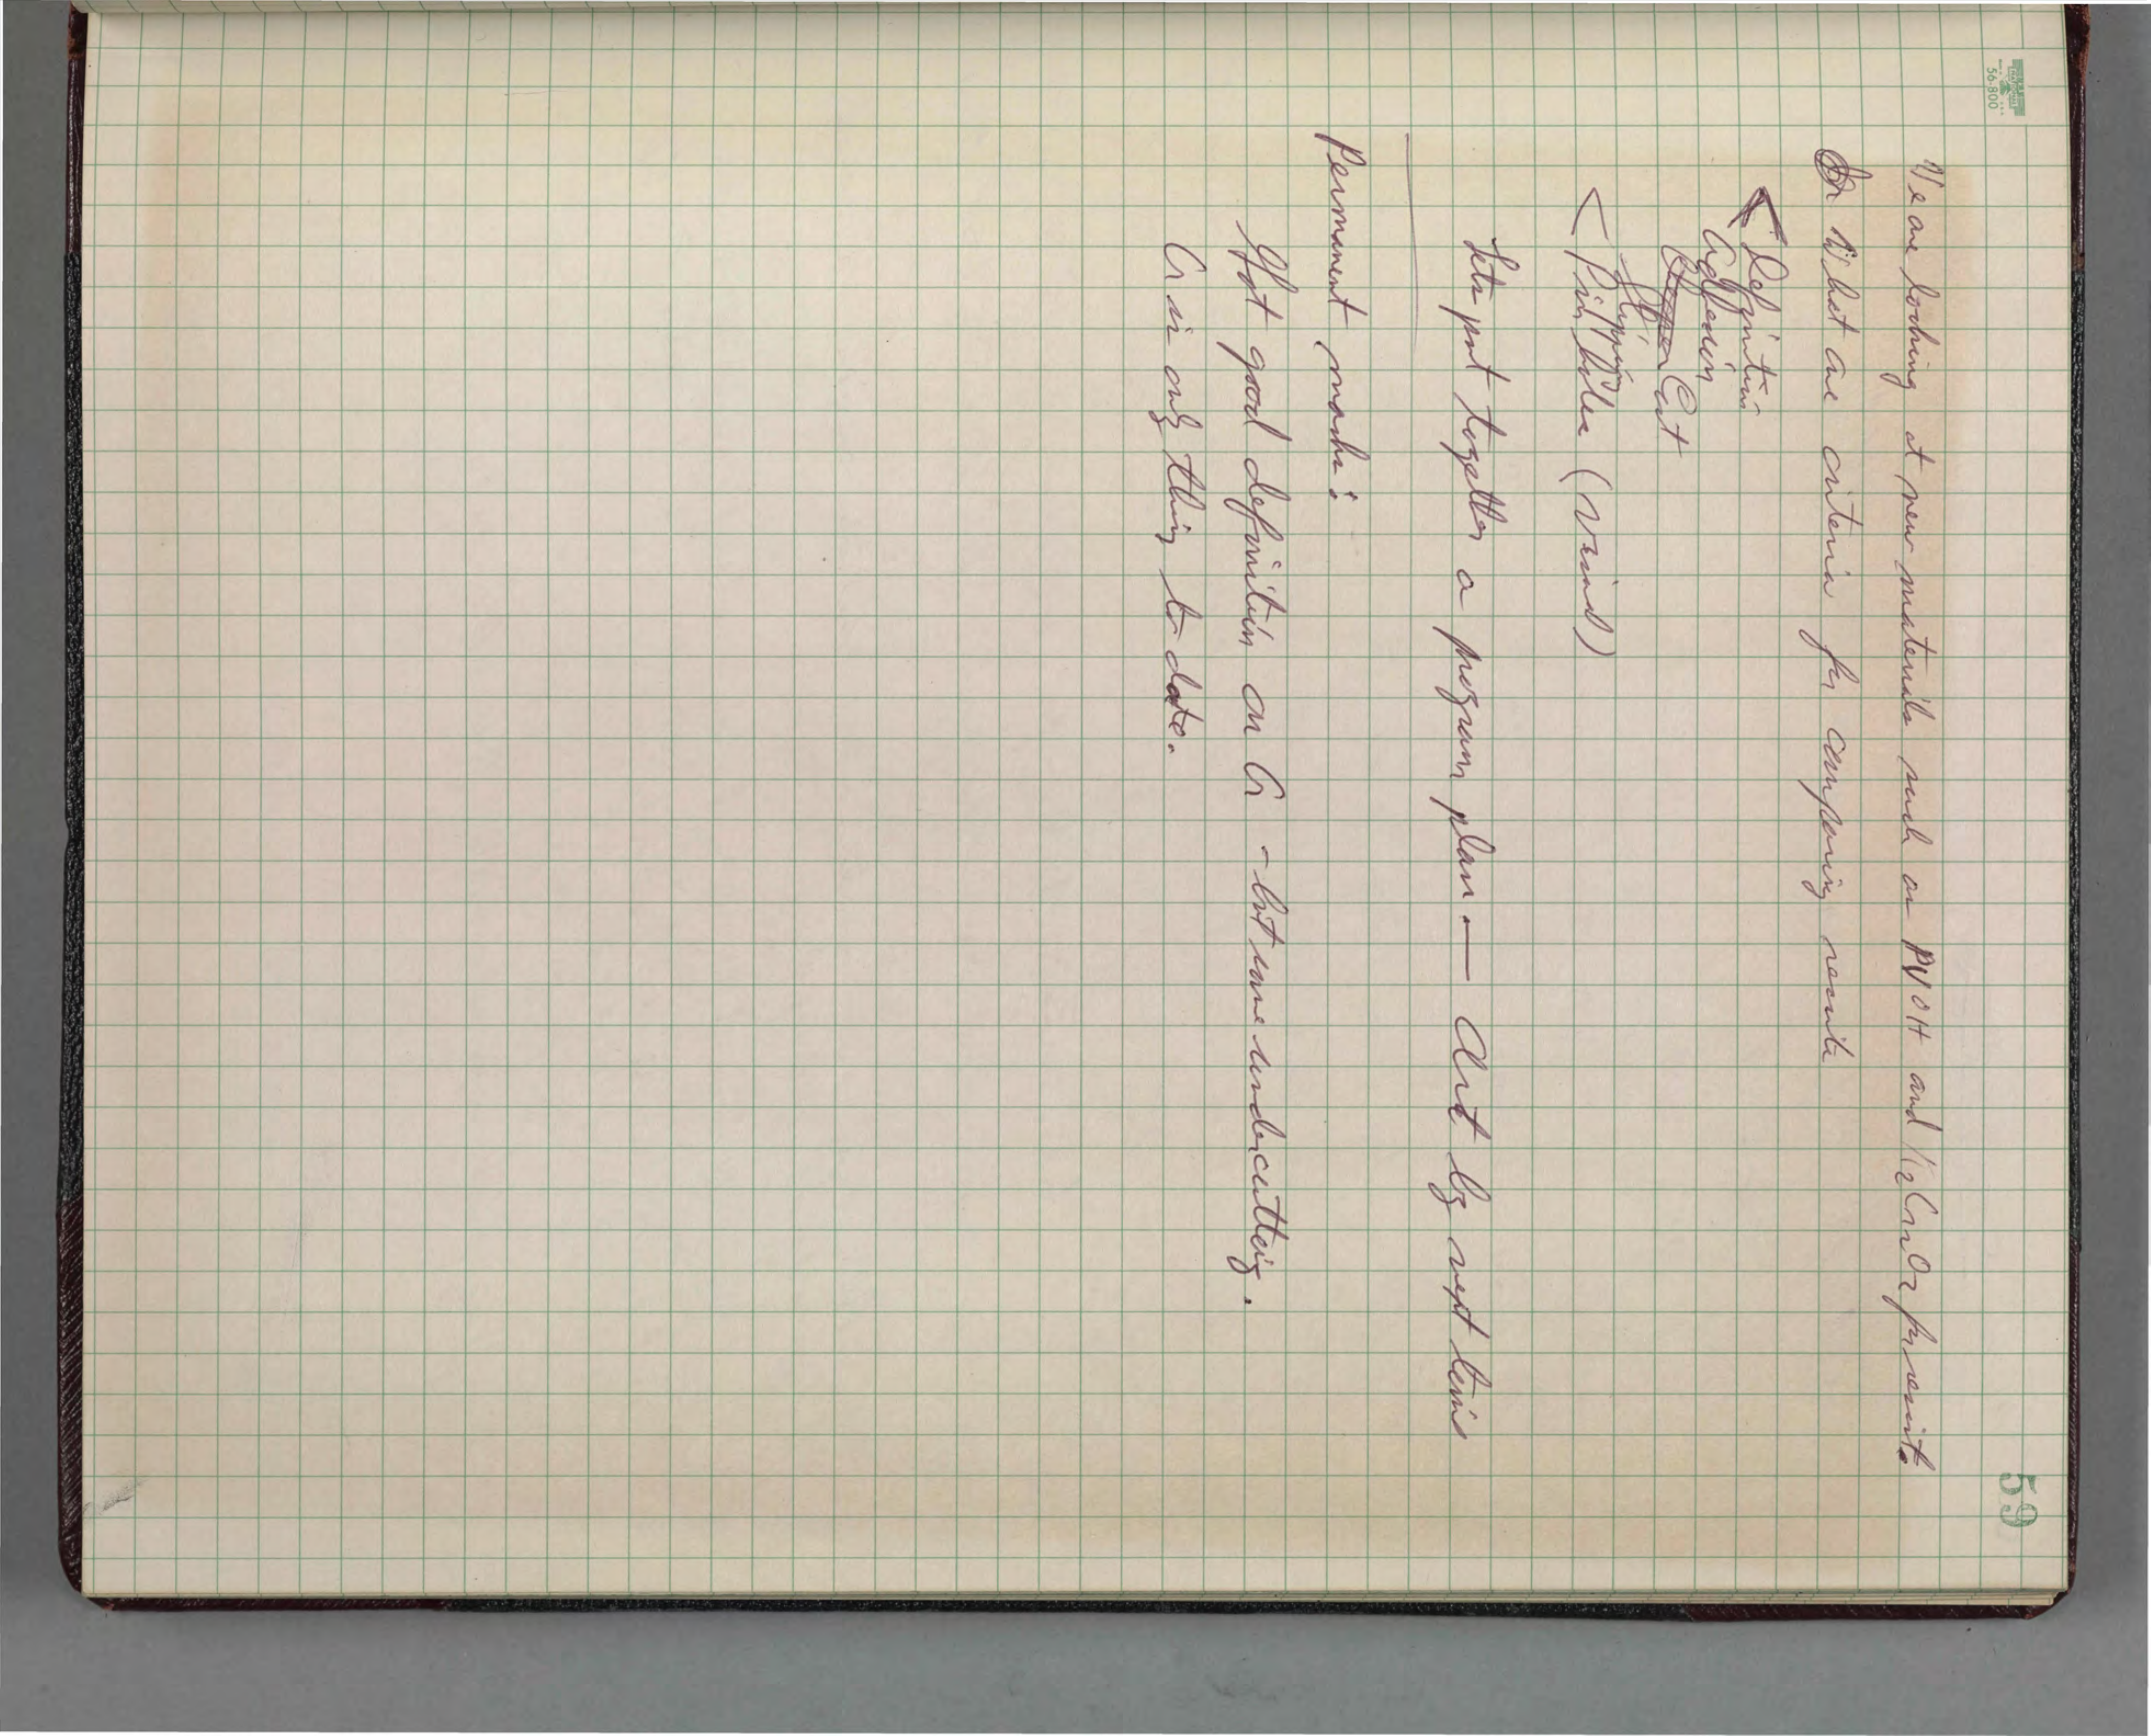 59
NATIONAL
56-800
We are looking at new materials such as PVOH and K2Cr2O7 presents
What are criteria for comparing results
Definition
Adhesion
Cost
Slipping
Pin holes (visual)
Lets put together a program plan — Art by next time
Permanent masks:
Got good definition on Cr - but some undercutting.
Cr is only thing to date.